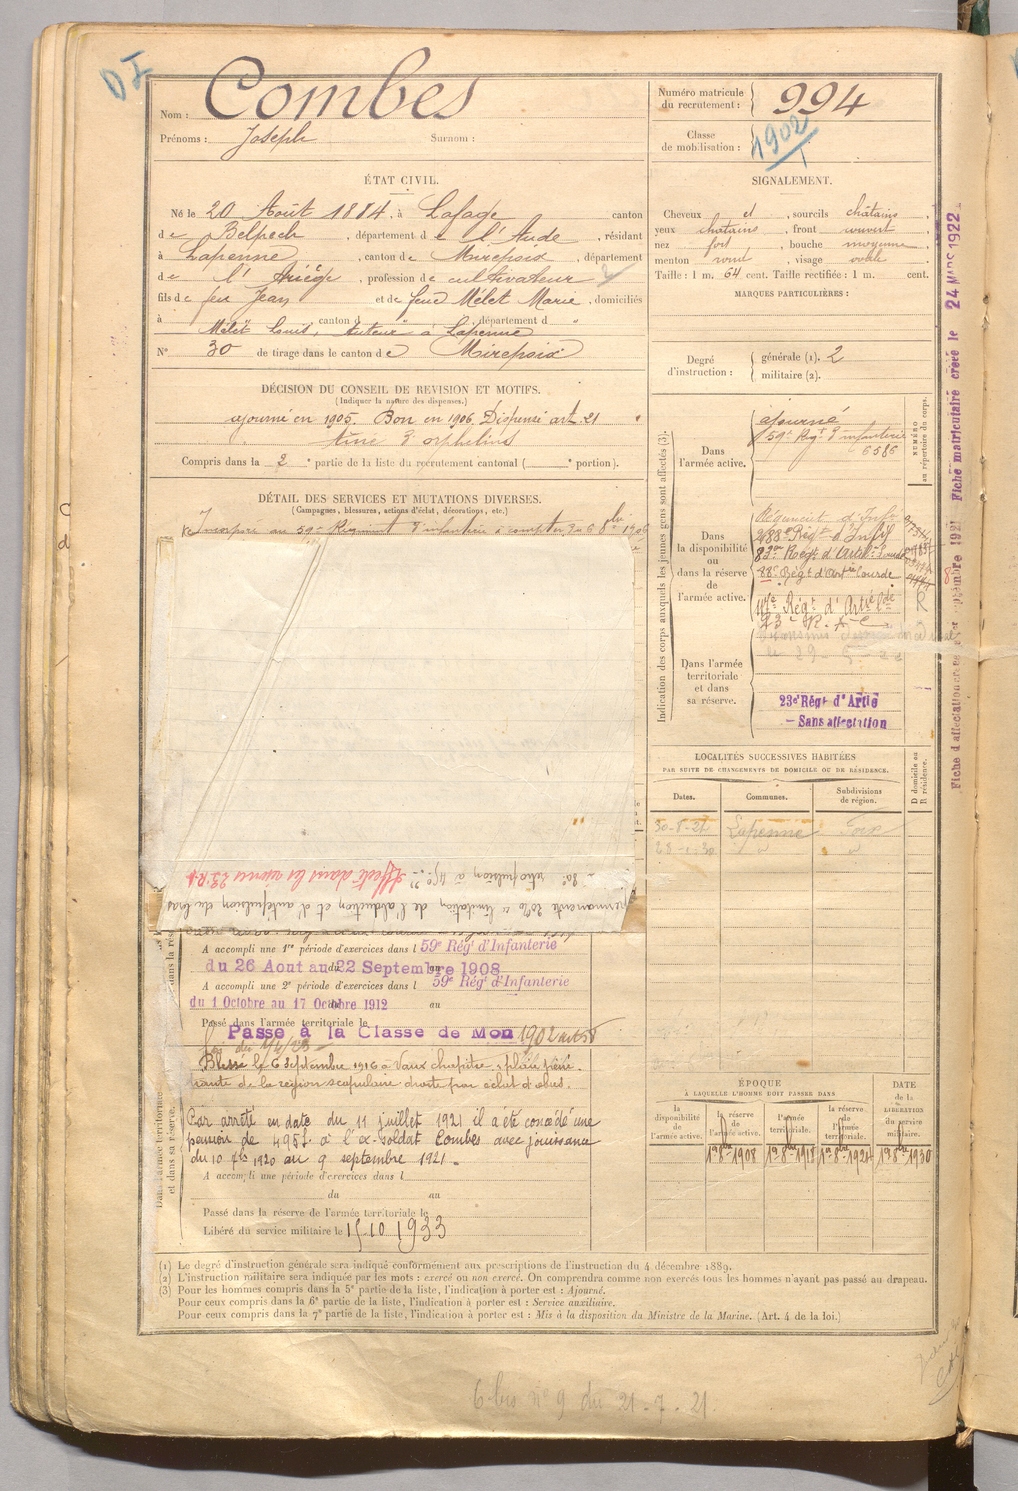 D I
Nom : Combes
Prénoms : Joseph Surnom :
ÉTAT CIVIL.
Né le 20 Août 1884, à Lafage canton
de Belpech, département de l'Aude, résidant
à Lapenne, canton de Mirepoix, département
de l'Ariège, profession de cultivateur
fils de feu Jean et de feue Mélet Marie, domiciliés
à canton d département d "
Mélet Louis, tuteur à Lapenne
N° 30 de tirage dans le canton de Mirepoix
DÉCISION DU CONSEIL DE REVISION ET MOTIFS.
(Indiquer la nature des dispenses.)
ajourné en 1905. Bon en 1906, Dispensé art. 21
aîné d'orphelins
Compris dans la 2e partie de la liste du recrutement cantonal ( e portion).
DÉTAIL DES SERVICES ET MUTATIONS DIVERSES.
(Campagnes, blessures, actions d'éclat, décorations, etc.)
Incorporé au 59e Régiment d'infanterie à compter du 6 8bre 1906
Affecté dans les réserves 23 RA
- 80° rétropulsion à 45°. 2°
permanente 20% "limitation de l'abduction et d'antépulsion du bras
A accompli une 1re période d'exercices dans l 59e Rég't d'Infanterie
du 26 Aout au 22 Septembre 1908
A accompli une 2e période d'exercices dans l 59e Rég't d'Infanterie
du 1 Octobre au 17 Octobre 1912 au
Passé dans l'armée territoriale le
Passé à la Classe de Mon 1902 art 58
Loi du 1/4/23
Blessé le 6 Septembre 1916 à Vaux chapitre, plaie péné-
trante de la région scapulaire droite par éclat d'obus.
Par arrêté en date du 11 juillet 1921 il a été concédé une
pension de 495f. à l'ex-soldat Combes avec jouissance
du 10 7bs 1920 au 9 septembre 1921.
A accompli une période d'exercices dans l
du au
Passé dans la réserve de l'armée territoriale le
Libéré du service militaire le 15 10 1933
Dans l'armée territoriale
et dans sa réserve.
Numéro matricule
du recrutement : 994
Classe
de mobilisation : 1902
SIGNALEMENT.
Cheveux et, sourcils châtains,
yeux châtains, front couvert,
nez fort, bouche moyenne,
menton rond, visage ovale.
Taille : 1 m. 64 cent. Taille rectifiée : 1 m. cent.
MARQUES PARTICULIÈRES :
Degré
d'instruction :
générale (1). 2
militaire (2).
Indication des corps auxquels les jeunes gens sont affectés (3).
NUMÉRO
au répertoire du corps.
Dans
l'armée active.
ajourné
59e Rég't d'infanterie
6586
Dans
la disponibilité
ou
dans la réserve
de
l'armée active.
Régiment d'Inf
283e Rég't d'Inf
83e Rég't d'Artie Lourde
88e Rég't d'Artie Lourde
117e Rég't d'Artie Lde
23e R. A. C
R
Dans l'armée
territoriale
et dans
sa réserve.
23e Rég't d'Artie
- Sans affectation
LOCALITÉS SUCCESSIVES HABITÉES
PAR SUITE DE CHANGEMENTS DE DOMICILE OU DE RÉSIDENCE.
Dates. Communes. Subdivisions de région. D domicile ou R résidence.
30-8-21 Lapenne Foix
28-1-30 " "
ÉPOQUE
À LAQUELLE L'HOMME DOIT PASSER DANS
la disponibilité de l'armée active. la réserve de l'armée active. l'armée territoriale. la réserve de l'armée territoriale. DATE de la LIBÉRATION du service militaire.
1er 8bre 1908 1er 8bre 1918 1er 8bre 1924 1er 8bre 1930
(1) Le degré d'instruction générale sera indiqué conformément aux prescriptions de l'instruction du 4 décembre 1889.
(2) L'instruction militaire sera indiquée par les mots : exercé ou non exercé. On comprendra comme non exercés tous les hommes n'ayant pas passé au drapeau.
(3) Pour les hommes compris dans la 5e partie de la liste, l'indication à porter est : Ajourné.
Pour ceux compris dans la 6e partie de la liste, l'indication à porter est : Service auxiliaire.
Pour ceux compris dans la 7e partie de la liste, l'indication à porter est : Mis à la disposition du Ministre de la Marine. (Art. 4 de la loi.)
6 bis n° 9 du 21-7-21.
Fiche matriculaire créée le 24 MARS 1922